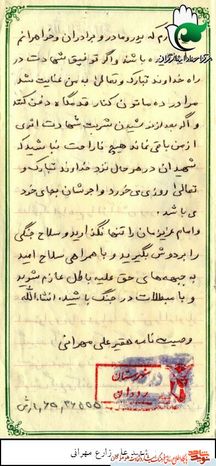 کرم له پدر و مادر و برادران و خواهرانم
باشد و اگر توفیق شهادت در
راه خداوند تبارک و تعالی به من عنایت شد
مرا در ده ساتون کنار قدمگاه دفن کنند
و اگر بعد از نوشیدن شربت شهادت اثری
از من باقی نماند هیچ ناراحت نباشید که
شهیدان در هر حال نزد خداوند تبارک و
تعالی روزی می خورد و اجرشان بجای خود
می باشد.
و امام عزیزمان را تنها نگذارید و سلاح جنگی
را بر دوش بگیرید و با همراهی سلاح امید
به جبهه های حق علیه باطل عازم شوید
و با مشکلات در جنگ باشید. انشاءالله
وصیت نامه حقیر علی مهرانی
خوزستان
شهید علی زارع مهرانی